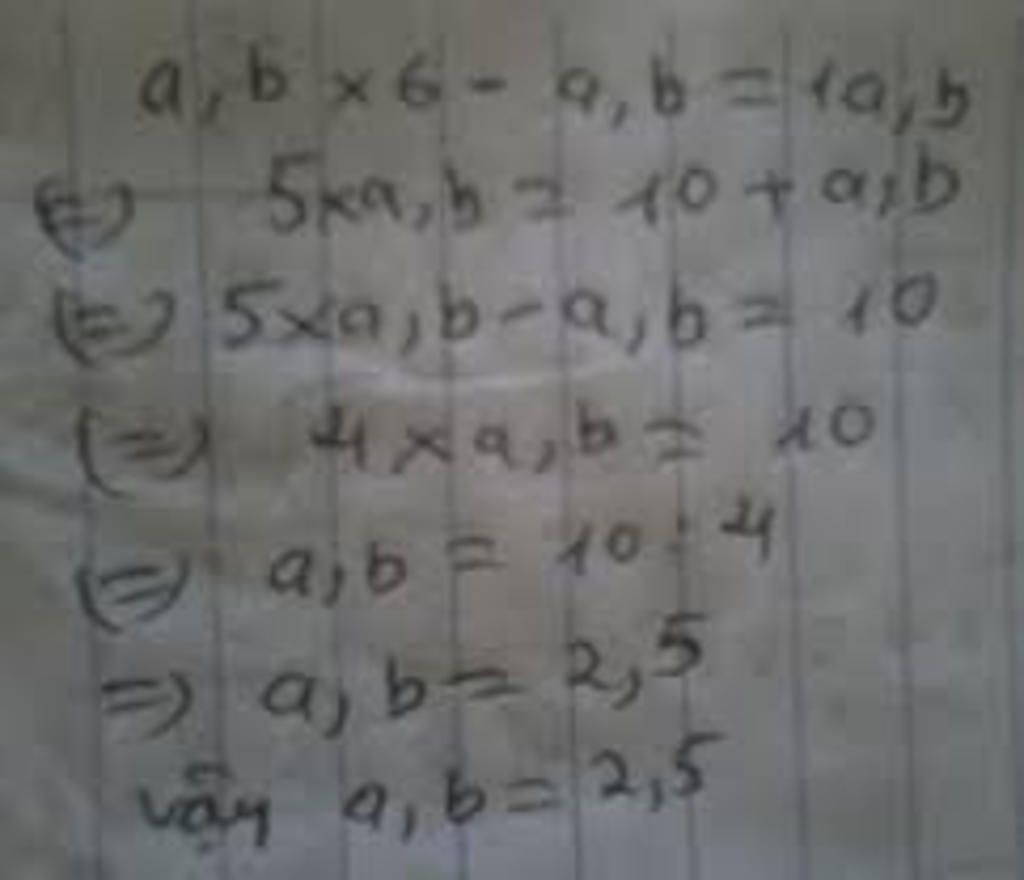 a,b × 6 - a,b = 1a,b
(=) 5×a,b = 10 + a,b
(=) 5×a,b - a,b = 10
(=) 4×a,b = 10
(=) a,b = 10 : 4
=) a,b = 2,5
vậy a,b = 2,5